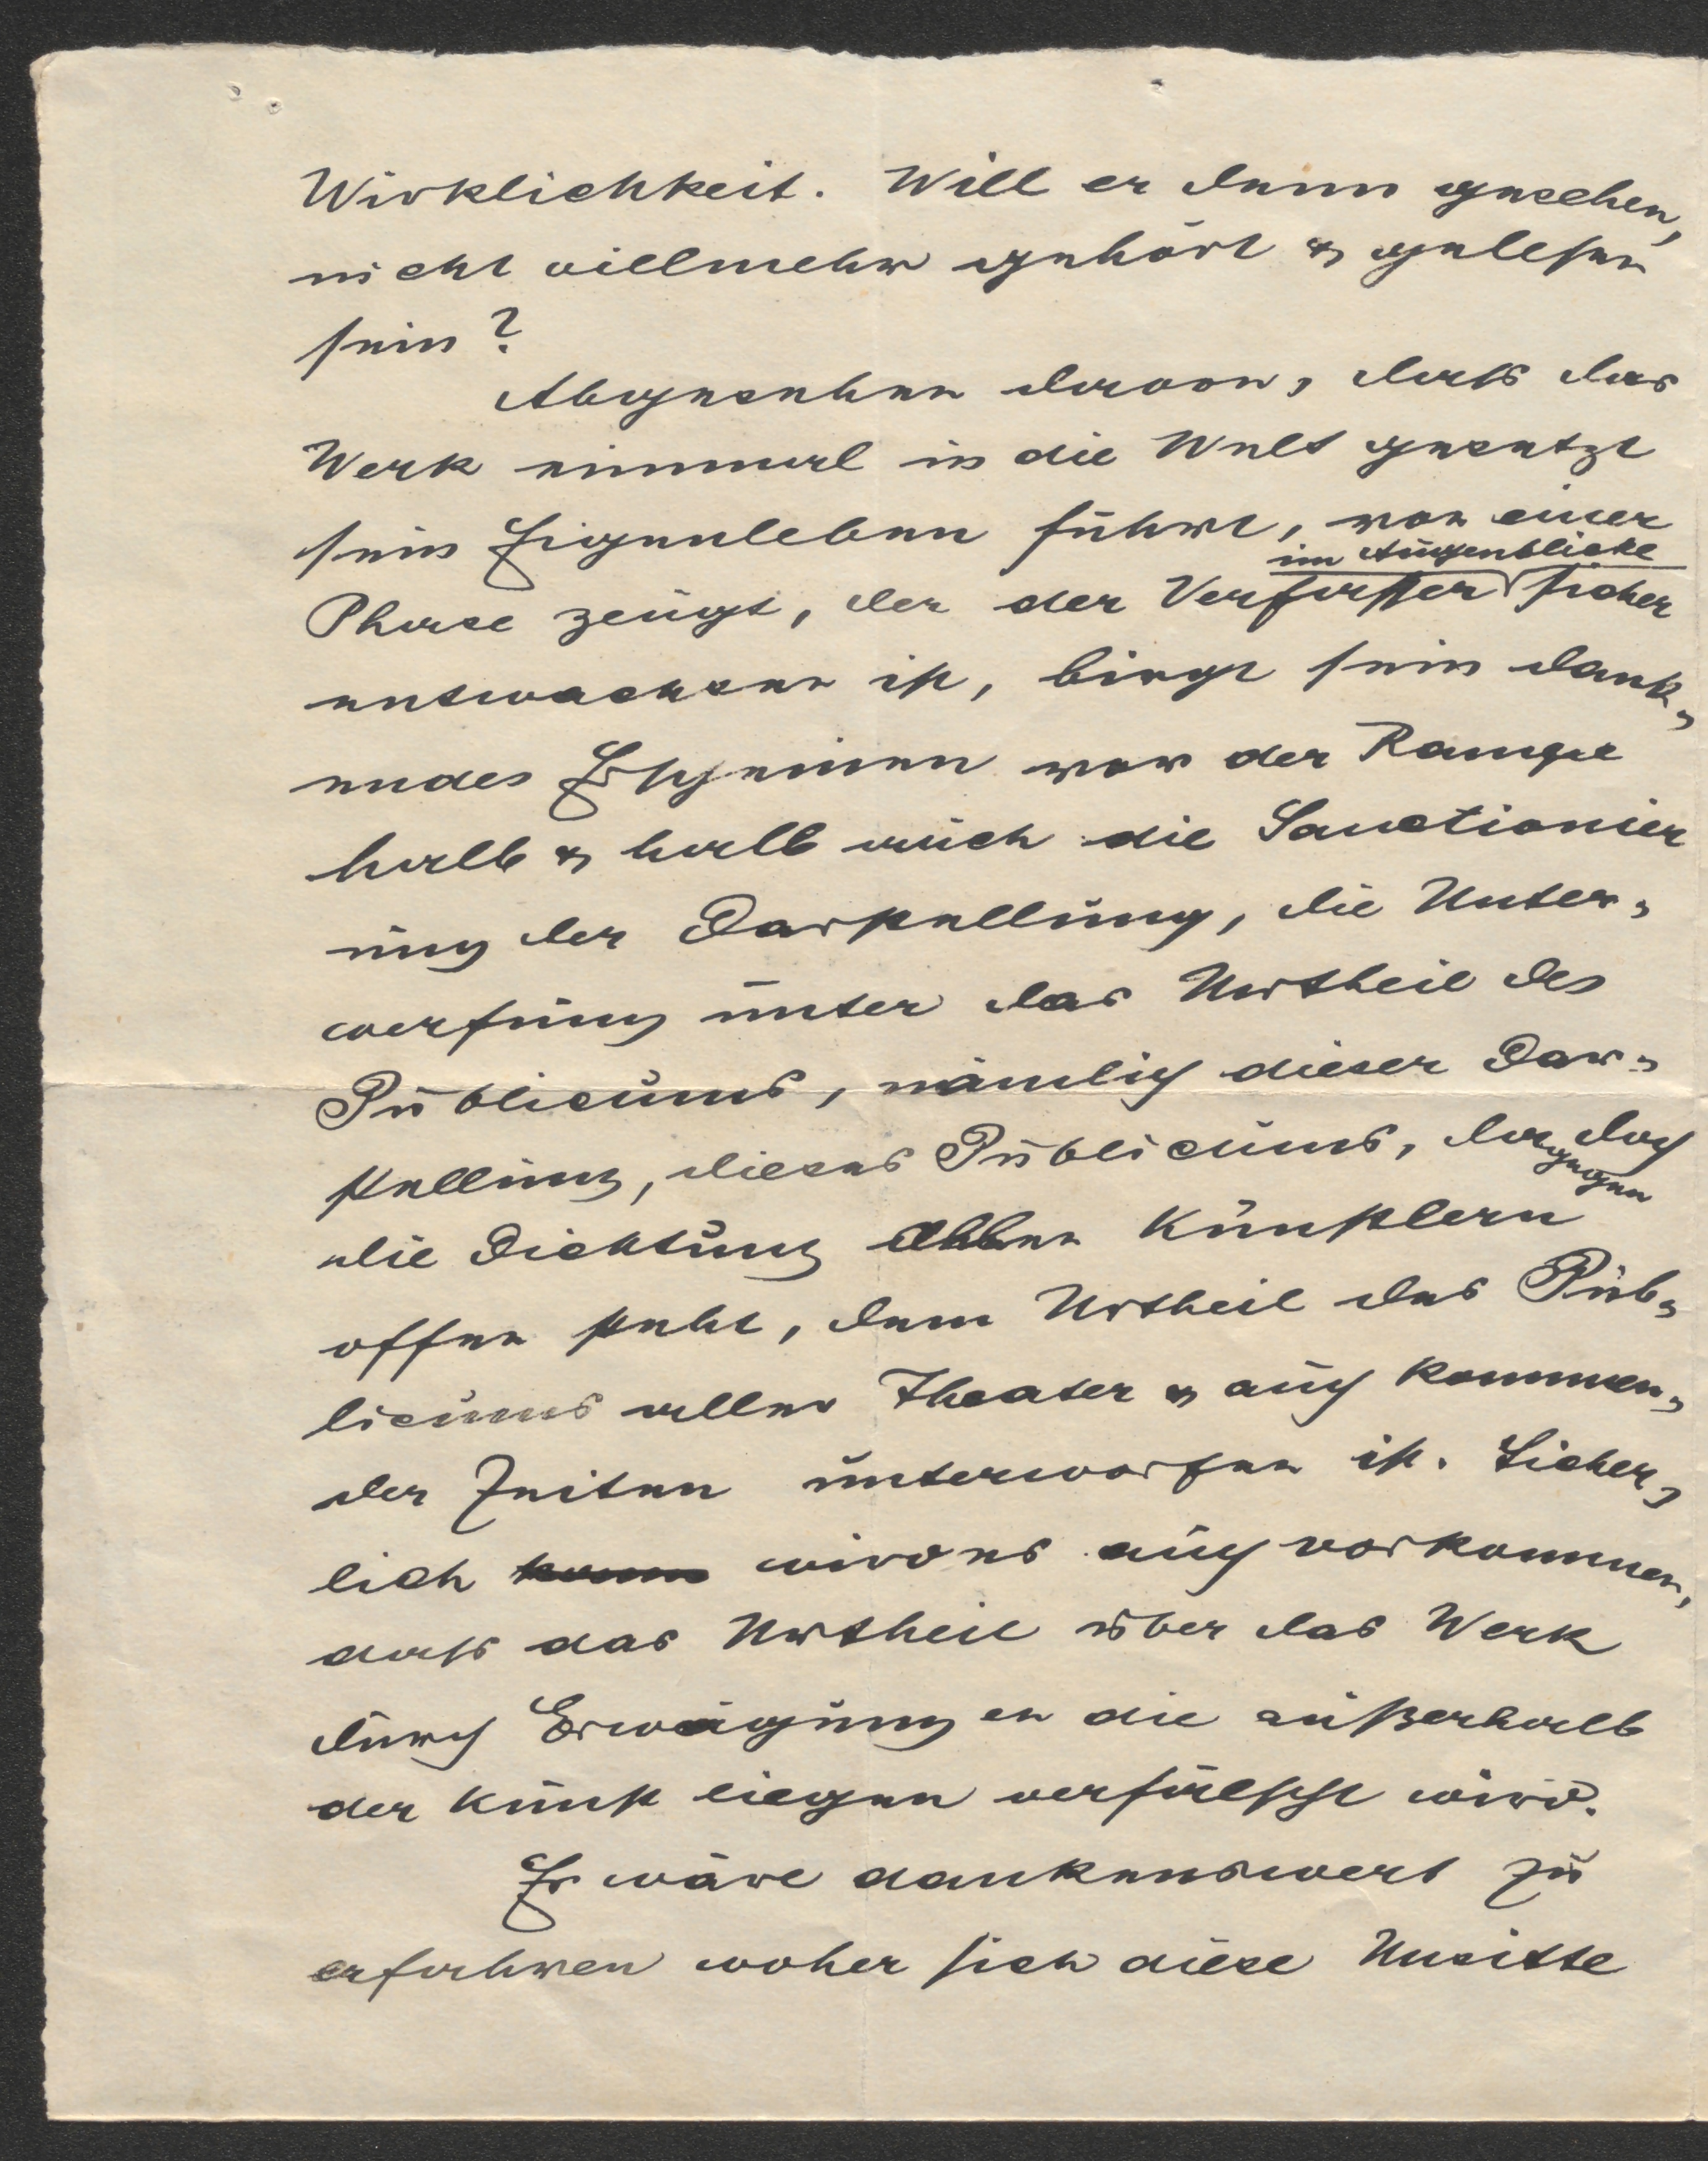 Wirklichkeit. Will er denn gesehen,
nicht viellmehr gehört & gelesen
sein?
Abgesehen davon, dass das
Werk einmal in die Welt gesetzt
sein Eigenleben führt, von einer
im Augenblicke
Phase zeugt, der der Verfasser sicher
entwachsen ist, birgt sein dank-
endes Erscheinen vor der Rampe
halb & halb auch die Sanctionier
ung der Darstellung, die Unter-
werfung unter das Urtheil des
Publicums, nämlich dieser Dar-
stellung, dieses Publicums, dagegen doch
die Dichtung allen Künstlern
offen steht, dem Urtheil des Pub-
licums aller Theater & auch kommen-
der Zeiten unterworfen ist. Sicher-
lich kann wird es auch vorkommen,
dass das Urtheil über das Werk
durch Erwägungen die außerhalb
der Kunst liegen verfälscht wird.
Es wäre dankenswert zu
erfahren woher sich diese Unsitte